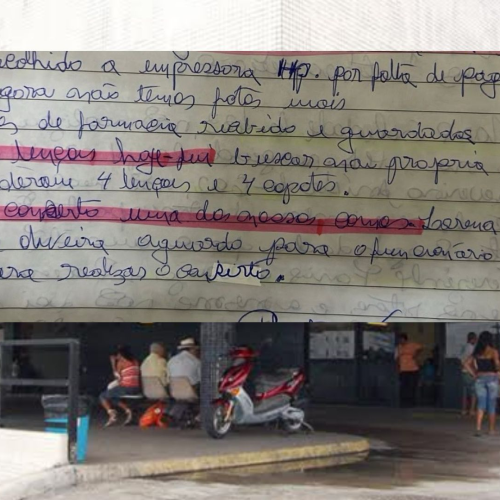 colhido a empressora HP. por falta de pag
agora não temos fotos mais
s de farmacia recebido e guardados
lençois hoje fui buscar na propria
deram 4 lençois e 4 capotes.
conserto uma das nossas camas
diveira aguardo para o funcionário
ra realizar o conserto.